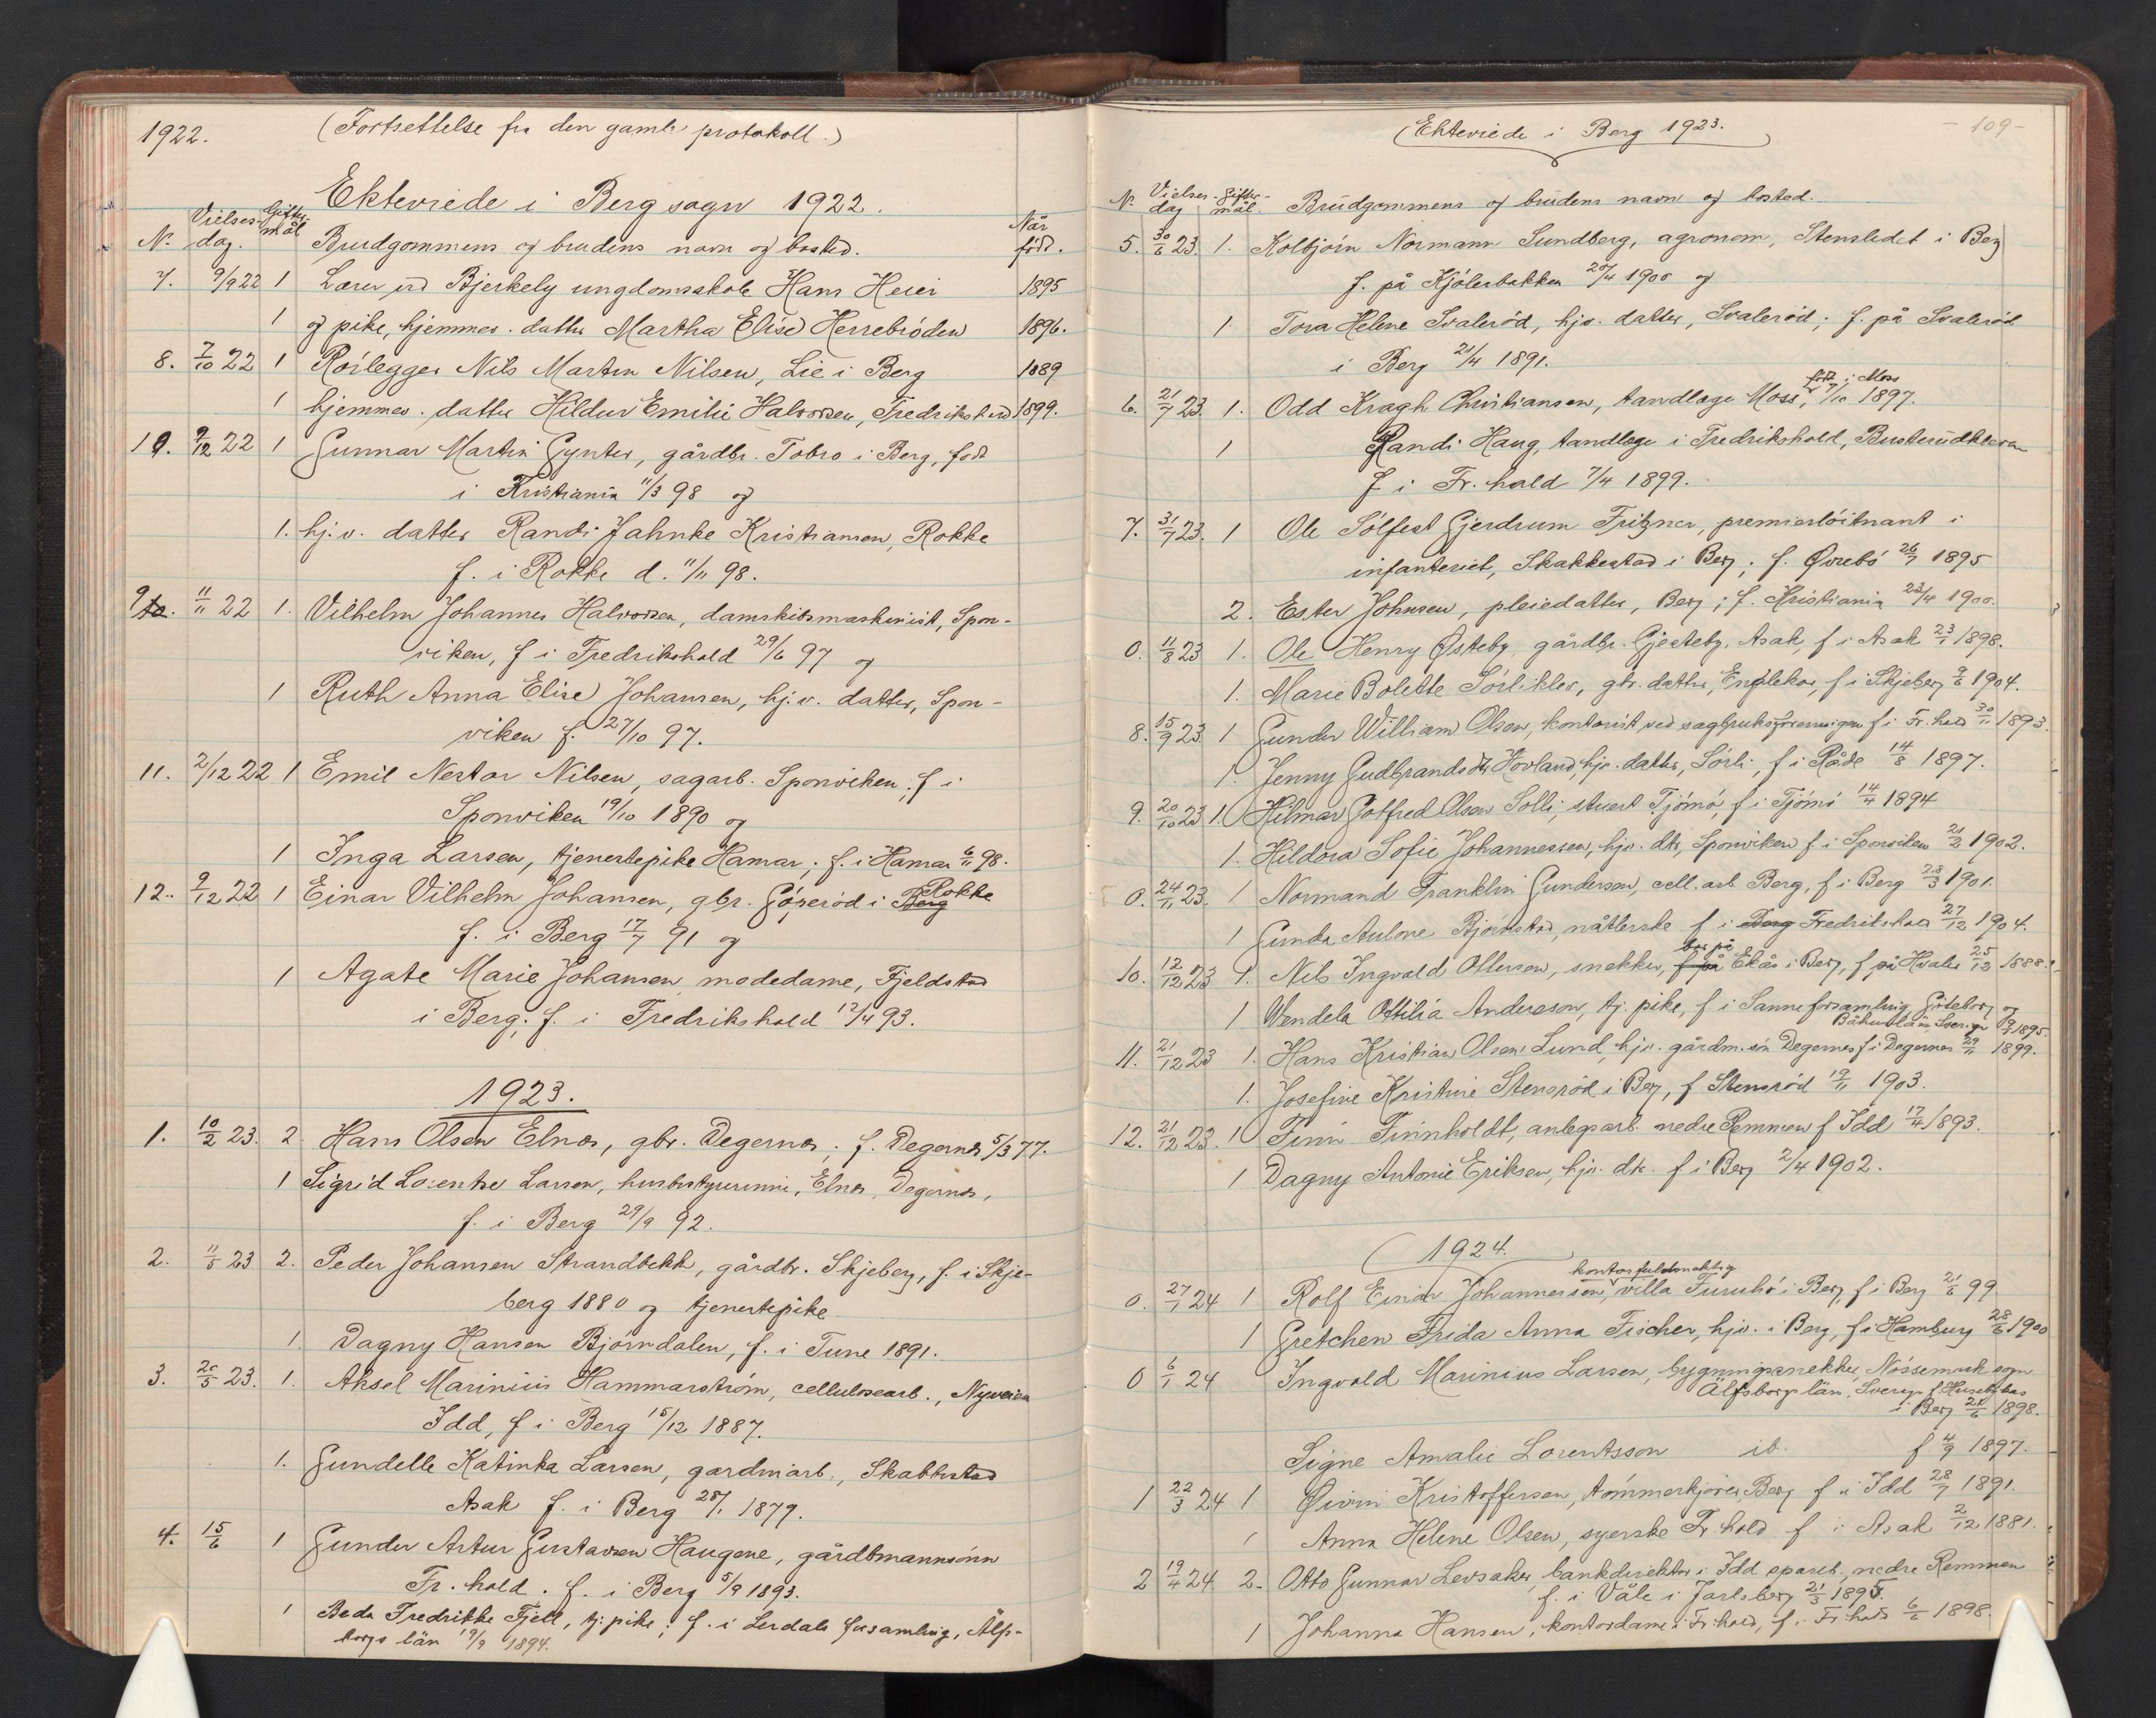 1922.
(Fortsettelse fra den gamle protokoll.)
Ekteviede i Berg sogn 1922.
N. Vielses-dag. Gifter-mål Brudgommens og brudens navn og bosted. Når født.
7. 9/9 22 1 Lærer ved Bjerkely ungdomsskole Hans Heier 1895
1 og pike, hjemmev. datter Martha Elise Herrebröden 1896.
8. 7/10 22 1 Rörlegger Nils Martin Nilsen, Lie i Berg 1889
1 hjemmev. datter Hildur Emilie Halvorsen, Fredrikshald 1899.
10. 9/12 22 1 Gunnar Martin Gynter, gårdbr. Tobro i Berg, født
i Kristiania 11/3 98 og
1. hj. v. datter Randi Jahnke Kristiansen, Rokke
f. i Rokke d. 11/11 98.
9. 11/11 22 1. Vilhelm Johannes Halvorsen, damskibsmaskinist, Spon-
viken, f i Fredrikshald 29/6 97 og
1 Ruth Anna Elise Johansen, hj. v. datter, Spon-
viken f. 27/10 97.
11. 2/12 22 1 Emil Nestor Nilsen, sagarb. Sponviken; f i
Sponviken 19/10 1890 og
1 Inga Larsen, tjenestepike Hamar; f. i Hamar 6/11 98.
12. 9/12 22 1 Einar Vilhelm Johansen, gbr. i Berg Rokke
f. i Berg 17/7 91 og
1 Agate Marie Johansen modedame, Fjeldstad
i Berg; f. i Fredrikshald 12/4 93.
1923.
1. 10/2 23. 2 Hans Olsen Elnes, gbr. Degernes; f. Degernes 5/3 77.
1 Sigrid Lorentse Larsen, husbestyrerinne, Elnes, Degernes,
f. i Berg 29/9 92.
2. 11/5 23 2. Peder Johansen Strandbekk, gårdbr. Skjeberg, f. i Skje-
berg 1880 og tjenestepike
1. Dagny Hansen Björndalen, f. i Tune 1891.
3. 20/5 23. 1. Aksel Marinius Hammarström, cellulosearb., Nyveien
Idd, f i Berg 15/12 1887.
1. Gundelle Katinka Larsen, gardinarb., Skakkestad
Asak f. i Berg 28/1 1879.
4. 15/6 1 Gunder Artur Gustavsen Haugene, gårdbmannsönn
Fr. hald. f. i Berg 5/9 1893.
1 Beda Fredrikke Fjell, tj. pike; f. i Lerdals forsamling, Älfs-
borgs län 19/9 1894.
Ekteviede i Berg 1923.
- 109 -
N. Vielses-dag Gifter-mål. Brudgommens og brudens navn og bosted.
5. 30/6 23. 1. Kolbjörn Normann Sundberg, agronom, Stensledet i Berg
f. på Kjölerbakken 20/4 1900 og
1 Tora Helene Svaleröd, hjv. datter, Svaleröd; f. på Svaleröd
i Berg 21/4 1891.
født i Moss
6. 21/7 23. 1. Odd Kragh Christiansen, tandlæge Moss, 7/10 1897.
1 Randi Haug, tandlæge i Fredrikshald, Busterudkleven
f i Fr. hald 7/4 1899.
7. 31/7 23. 1 Ole Sölfest Gjerdrum Fritzner, premierlöitnant i
infanteriet, Skakkestad i Berg; f. Øvrebö 26/7 1895
2. Ester Johnsen, pleiedatter, Berg; f. Kristiania 23/4 1900.
0. 11/8 23 1. Ole Henry Østeby, gårdbr. Gjesteby, Asak, f i Asak 23/1 1898.
1. Marie Bolette Sörlikler, gbr. datter, Englekor, f i Skjeberg 9/6 1904.
8. 15/9 23 1 Gunder William Olsen, kontorist ved sagbruksforeningen f i Fr. hald 30/11 1893.
1. Jenny Gudbrandsdtr Hovland, hjv. datter, Sörli, f i Råde 14/8 1897.
9. 20/10 23 1. Hilmar Gotfred Olsen Solli, stuert Tjömö, f i Tjömö 14/4 1894
1. Hildora Sofie Johannessen, hjv. dtr, Sponviken f i Sponviken 21/2 1902.
0. 24/11 23. 1 Normand Franklin Gundersen, cell. arb Berg, f i Berg 28/3 1901.
1 Gunda Aulove Björnstad, nåtlerske f i Berg Fredrikshald 27/12 1904.
bor på
10. 12/12 23 1. Nils Ingvald Ottersen, snekker, f på Ekås i Berg, f på Hvaler 25/12 1888.
1 Wendela Ottilia Andersson, tj. pike, f i Sanne forsamling, Göteborg og
Båhuslän Sverige 9/9 1895.
11. 21/12 23 1. Hans Kristian Olsen Lund, hjv. gårdm. sön Degernes f i Degernes 29/11 1899.
1. Josefine Kristine Stensröd i Berg, f Stensröd 19/11 1903.
12. 21/12 23. 1 Finn Finnholdt, anlegsarb. nedre Remmen f Idd 17/4 1893.
1 Dagny Antonie Eriksen, hjv. dtr. f i Berg 2/4 1902.
1924.
kontorfuldmektig
0. 27/1 24 1 Rolf Einar Johannessen, villa Furuhö i Berg, f i Berg 21/6 99
1 Gretchen Frida Anna Fischer, hjv. i Berg, f i Hamburg 28/6 1900
0 6/1 24 Ingvald Marinius Larsen, bygningssnekker, Nössemark sogn
Älfsborgs län, Sverige f Huseby
i Berg 21/6 1898.
Signe Amalie Lorentsson ib. f 4/9 1897.
1 22/3 24 1 Øivin Kristoffersen, tömmerkjörer, Berg f i Idd 28/7 1891.
1 Anna Helene Olsen, syerske Fr. hald f i Asak 2/12 1881.
2 19/4 24 2. Otto Gunnar Levsaker, bankdirektör i Idd spareb., nedre Remmen
f. i Våle i Jarlsberg 21/3 1895.
1 Johanna Hansen, kontordame i Fr. hald, f. i Fr. hald 6/6 1898.